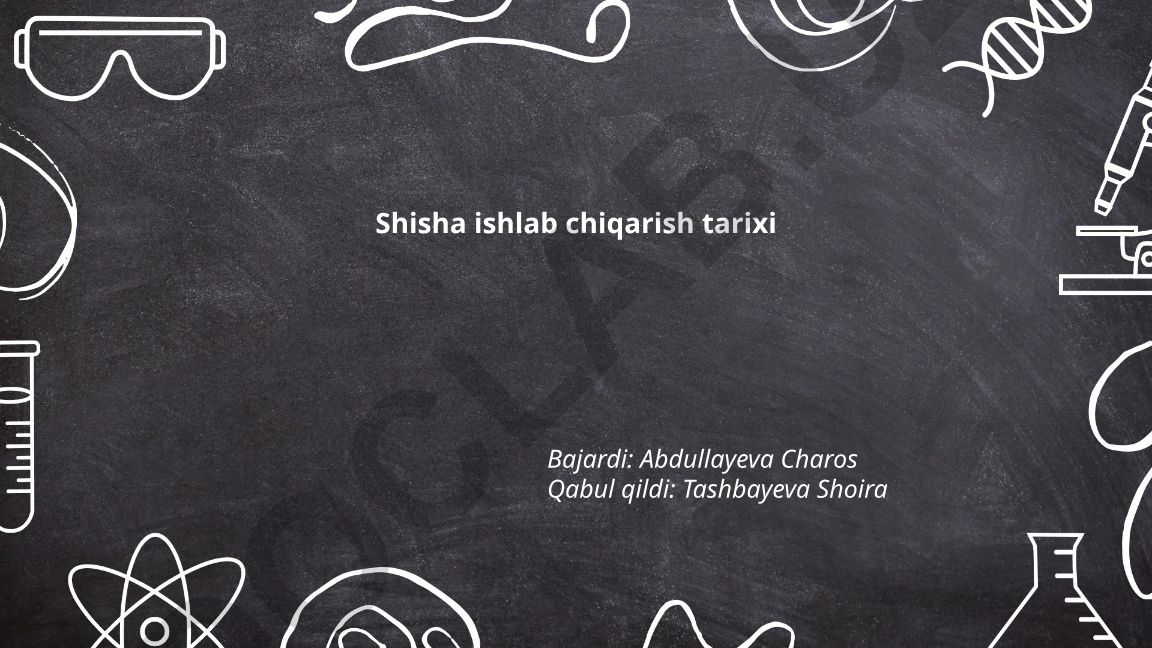 Shisha ishlab chiqarish tarixi
Bajardi: Abdullayeva Charos
Qabul qildi: Tashbayeva Shoira